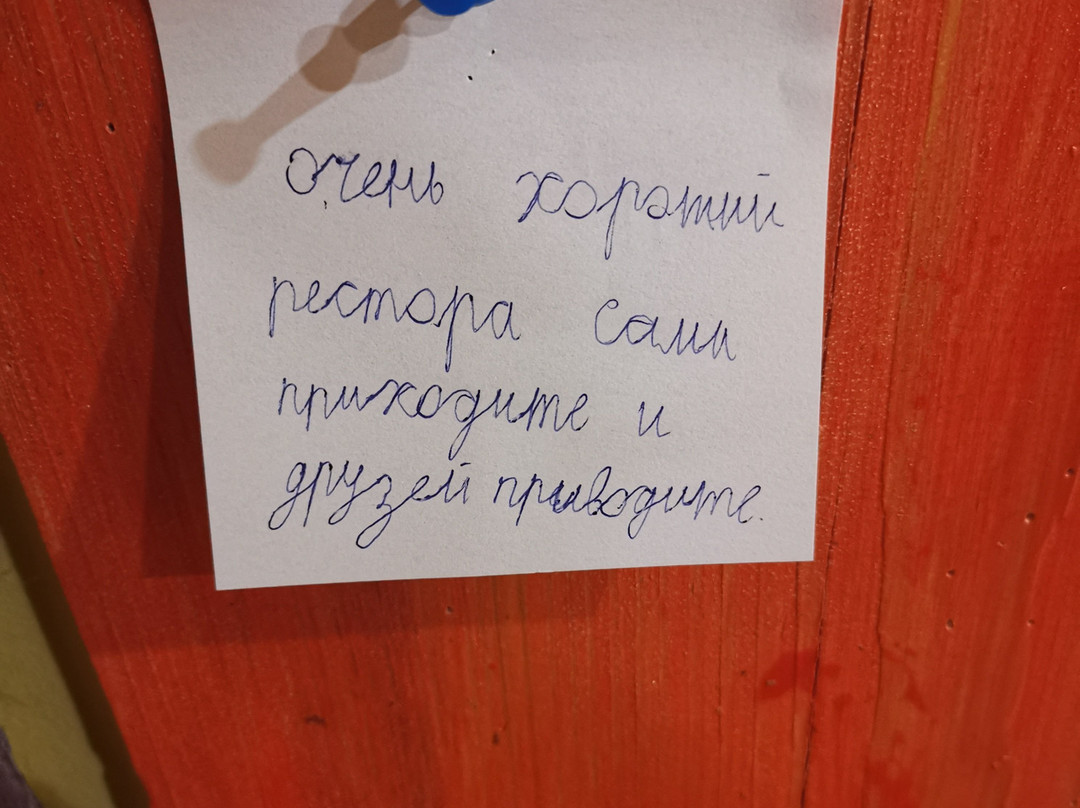 очень хороший
рестора сами
приходите и
друзей приводите.